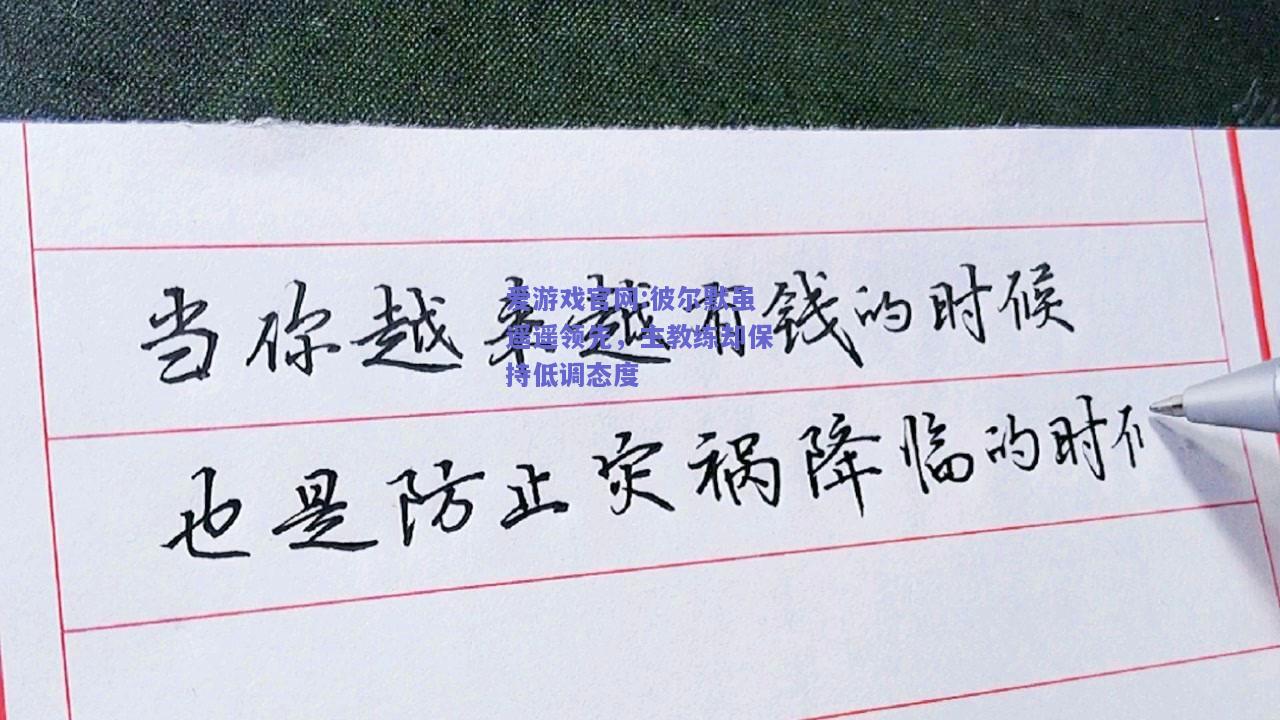 当你越来越有钱的时候
爱游戏官网:彼尔默虽
遥遥领先，主教练却保
持低调态度
也是防止灾祸降临的时